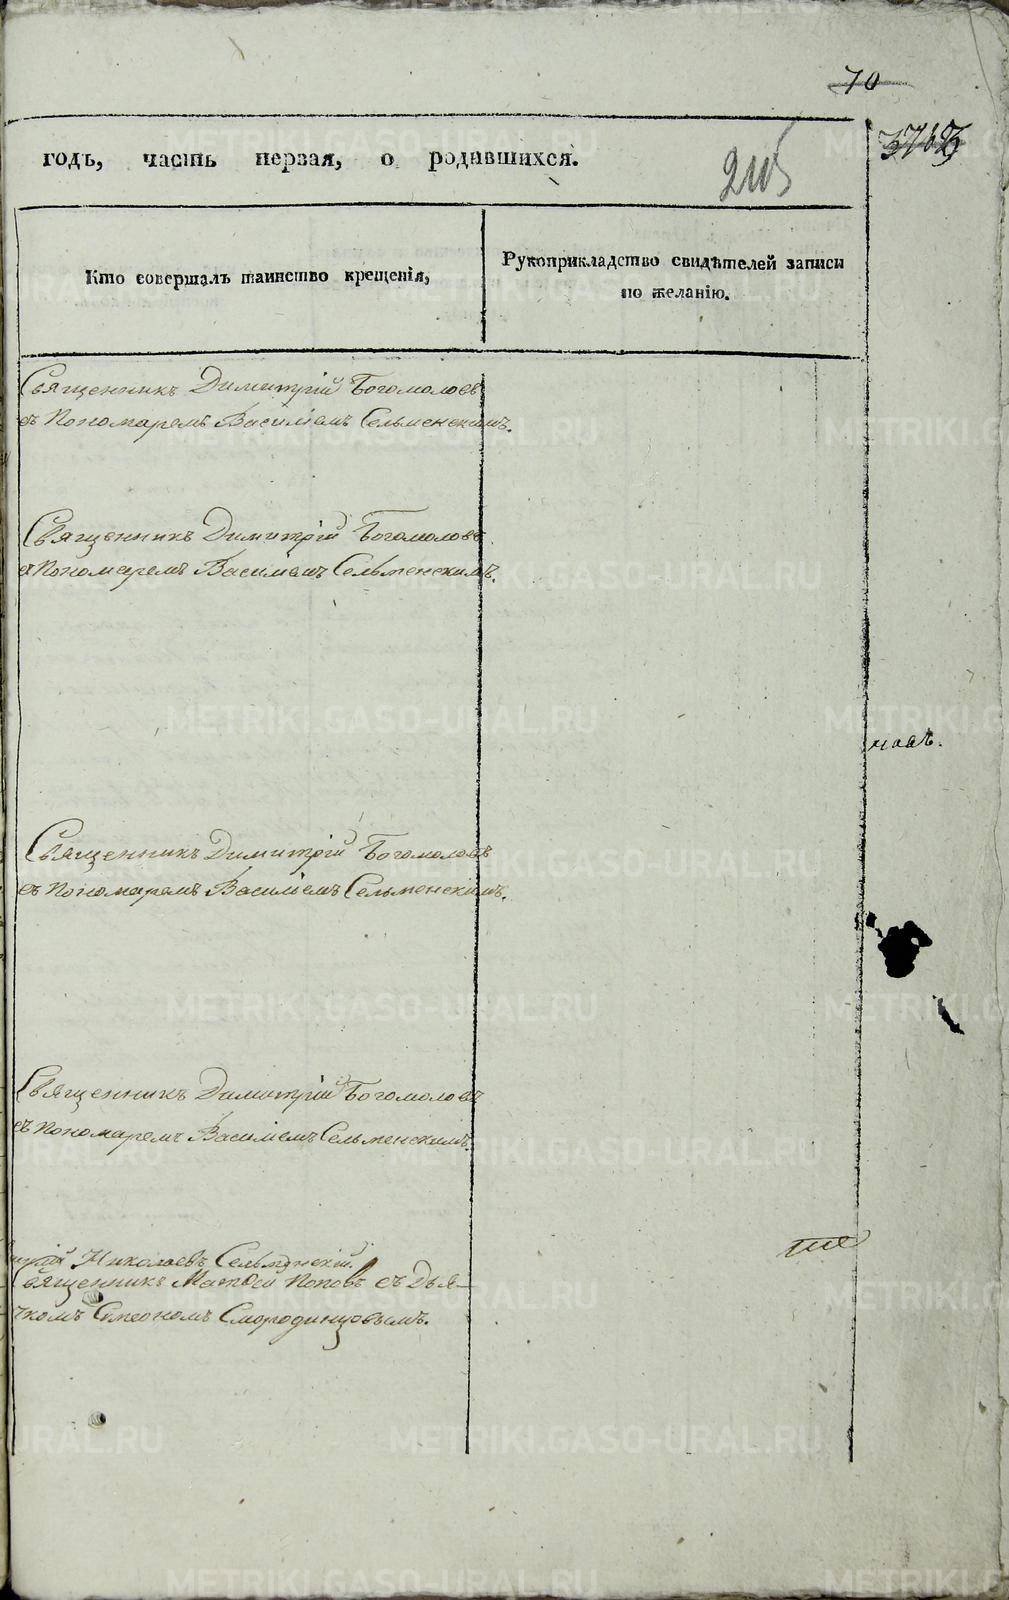 70
годъ, часть первая, о родившихся.
Кто совершалъ таинство крещенія,
Рукоприкладство свидѣтелей записи
по желанію.
Священникъ Димитрій Богомоловъ
съ Пономаремъ Василіемъ Сельменскимъ.
Священникъ Димитрій Богомоловъ
съ Пономаремъ Василіемъ Сельменскимъ.
новъ.
Священникъ Димитрій Богомоловъ
съ Пономаремъ Василіемъ Сельменскимъ.
Священникъ Димитрій Богомоловъ
съ Пономаремъ Василіемъ Сельменскимъ.
Николаевъ Сельменскій.
Священникъ Матѳей Поповъ съ Дья-
чкомъ Симеономъ Смородинцовымъ.
METRIKI.GASO-URAL.RU